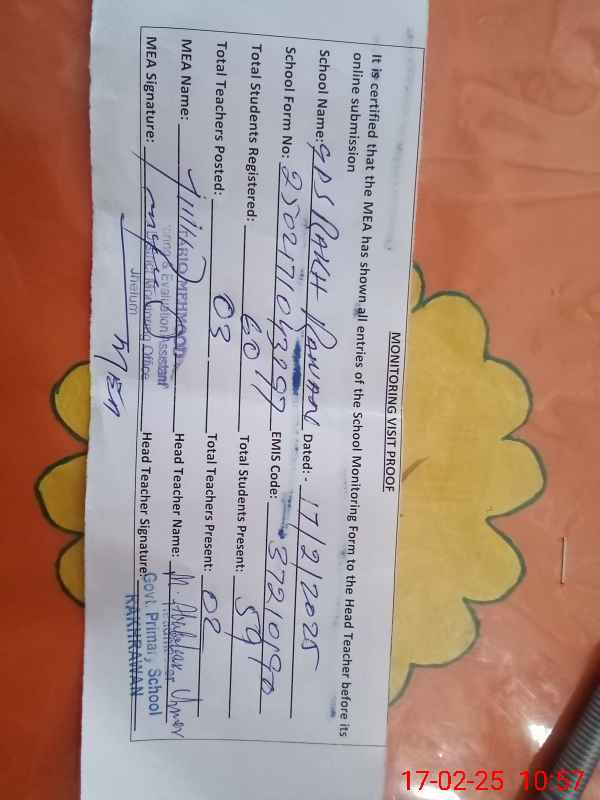 MONITORING VISIT PROOF
It is certified that the MEA has shown all entries of the School Monitoring Form to the Head Teacher before its
online submission
School Name: GPS RAKH RAWAN Dated: - 17/2/2025
School Form No: EMIS Code: 37210190
Total Students Registered: 60 Total Students Present: 59
Total Teachers Posted: 03 Total Teachers Present: 02
MEA Name: Head Teacher Name:
MEA Signature: Head Teacher Signature:
Evaluation Assistant
Monitoring Office
Jhelum
MEA
Govt. Primary School
RAKHRAWAN
17-02-25 10:57